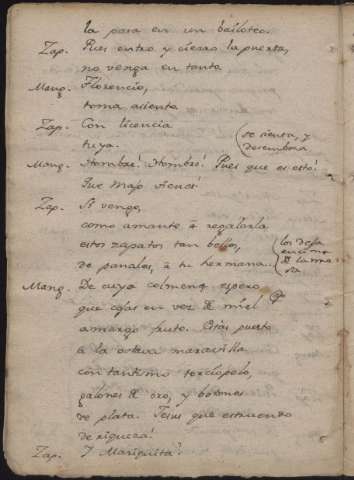 la pasa en un balloteo.
Zap. Pues entro y cierro la puerta,
no venga en tanto
Mang. Florencio,
toma asiento
Zap. Con licencia
tuya. (se sienta, y desembosa
Mang. Hombre! Hombre! Pues que es esto!
Que majo vienes!
Zap. Si vengo,
como amante à regalarla
estos zapatos tan bellos,
de panales, à tu hermana. (los deja encima de la mesa
Mang. De cuya colmena espero
que cojas en vez de miel
amargo fruto. Estás puesto
a la octava maravilla
con tantisimo terciopelo,
galones de oro, y botones
de plata. Jesus que estruendo
de riqueza!
Zap. Y Mariquita?